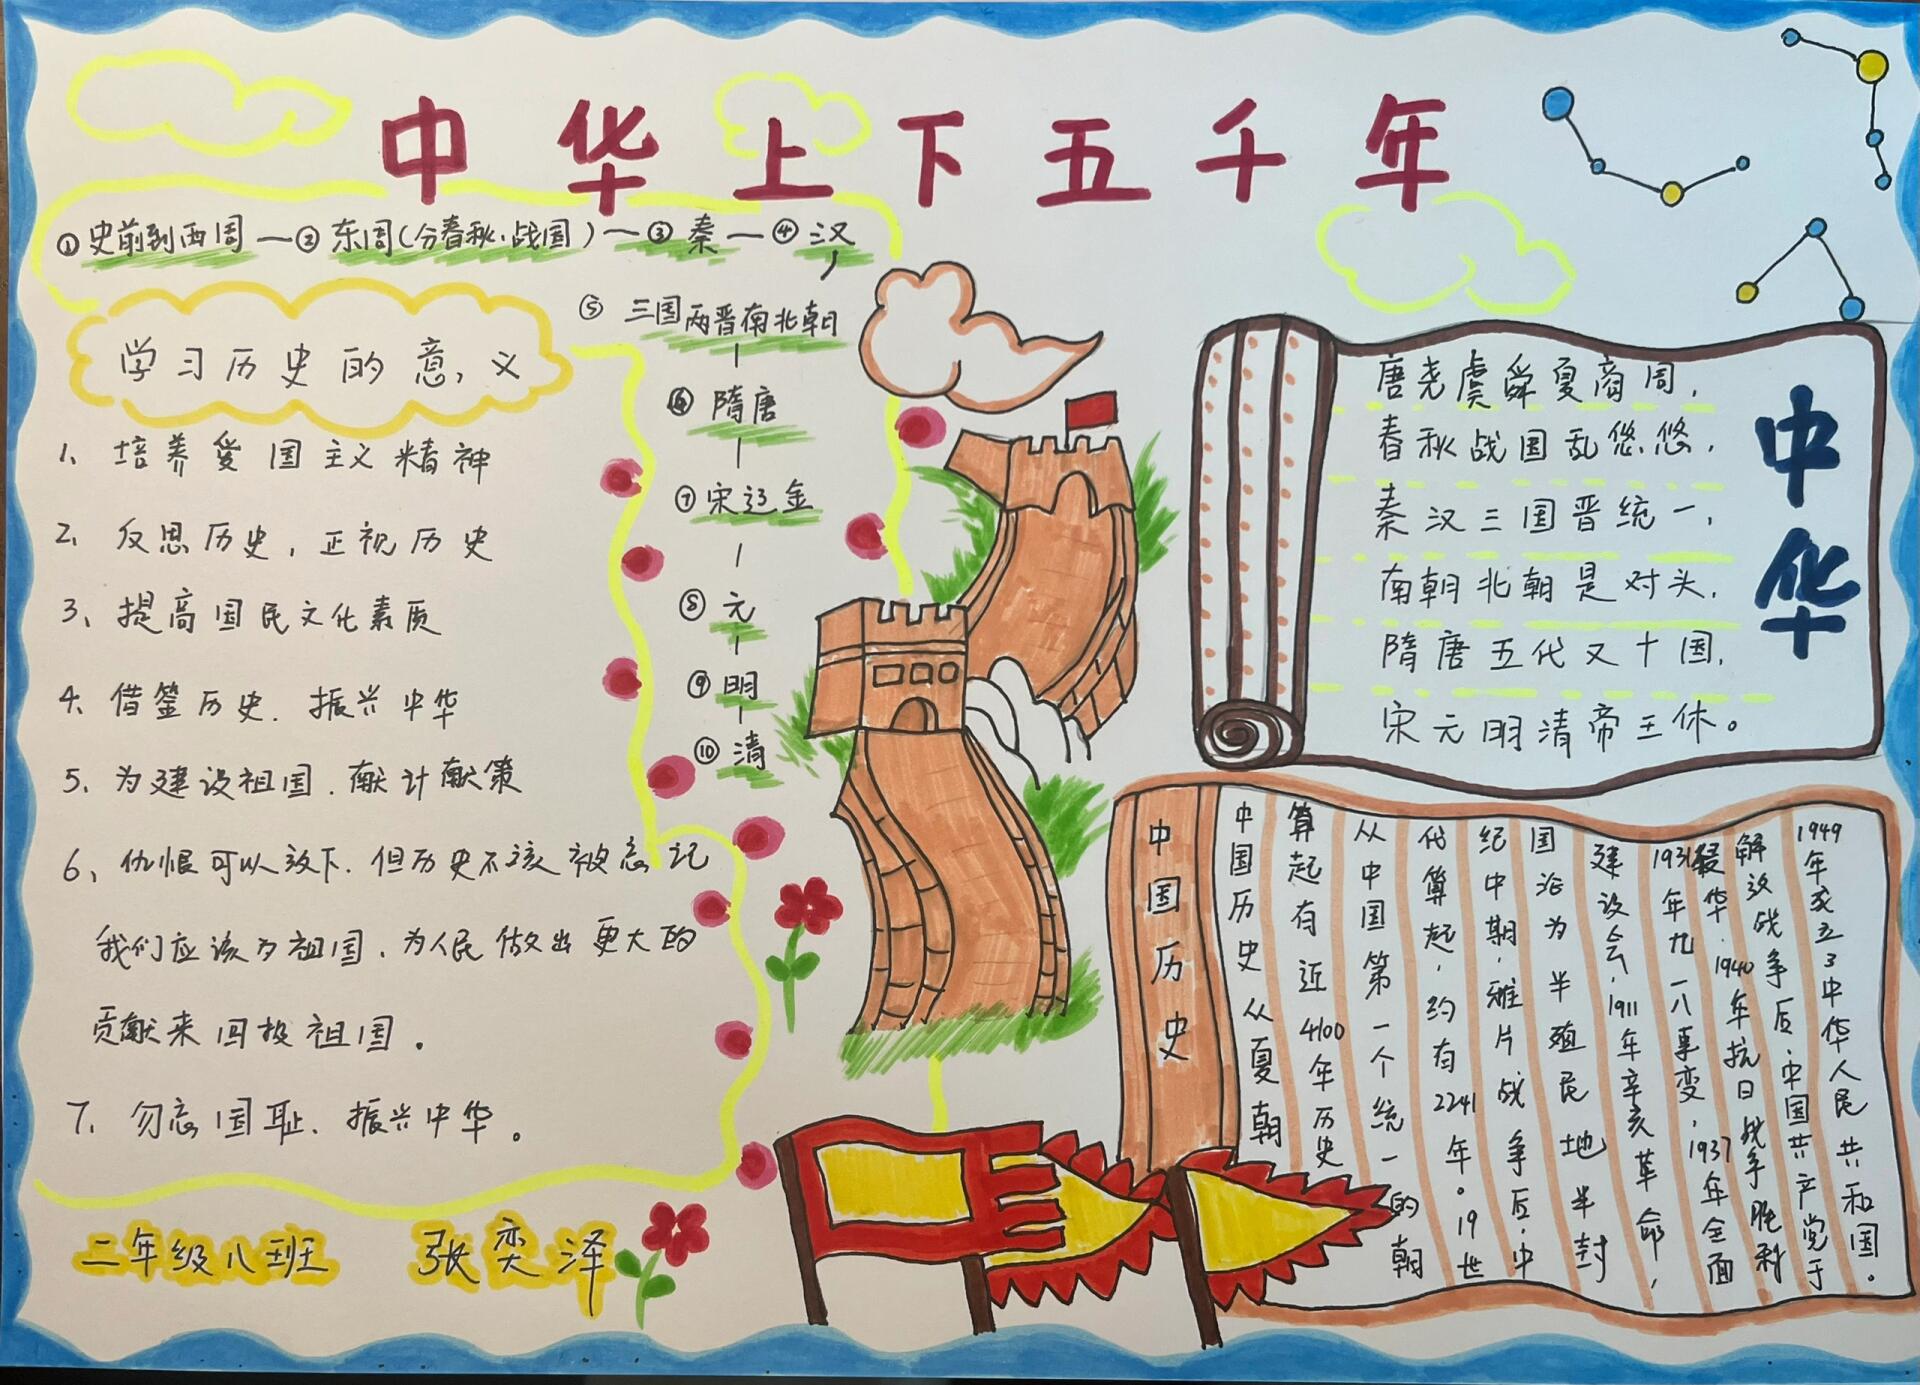 中华上下五千年
①史前到西周—②东周(分春秋、战国)—③秦—④汉
⑤三国两晋南北朝
⑥隋唐
⑦宋辽金
⑧元
⑨明
⑩清
学习历史的意义
1、培养爱国主义精神
2、反思历史，正视历史
3、提高国民文化素质
4、借鉴历史、振兴中华
5、为建设祖国、献计献策
6、仇恨可以放下、但历史不该被忘记
我们应该为祖国、为人民做出更大的
贡献来回报祖国。
7、勿忘国耻、振兴中华。
二年级八班 张奕泽
中华
唐尧虞舜夏商周，
春秋战国乱悠悠，
秦汉三国晋统一，
南朝北朝是对头，
隋唐五代又十国，
宋元明清帝王休。
中国历史
中国历史从夏朝
算起有近4100年历史
从中国第一个统一的朝
代算起，约有2241年。19世
纪中期，雅片战争后，中
国沦为半殖民地半封
建设会，1911年辛亥革命，
1931年九一八事变，1937年全面
华，1940年抗日战争胜利
解放战争后，中国共产党于
1949年成立了中华人民共和国。